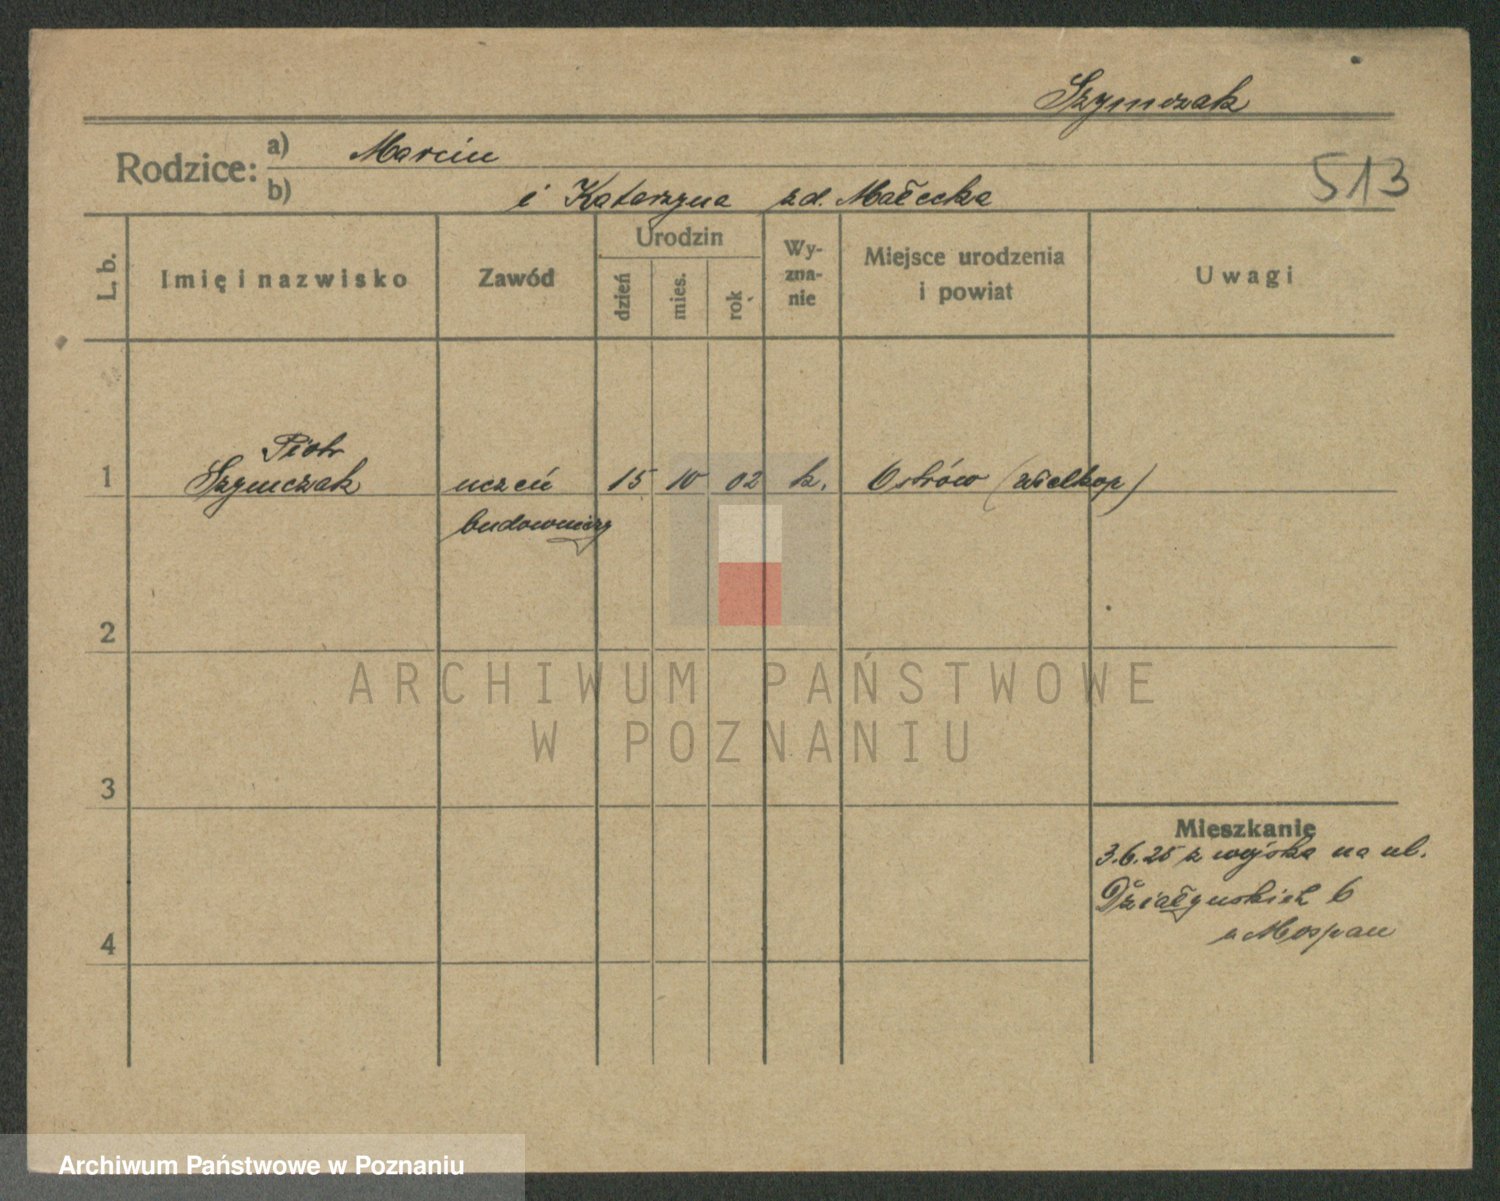 Szymczak
Rodzice: a) Marcin
b) i Katarzyna z d. Małecka
513
L. b.
Imię i nazwisko
Zawód
Urodzin
dzień
mies.
rok
Wy-
zna-
nie
Miejsce urodzenia
i powiat
Uwagi
Piotr
1 Szymczak uczeń 15 10 02 k. Ostrów (wielkop)
budowniczy
2
3
4
Mieszkanie
3.6.25 z wojska na ul.
Działyńskich 6
u Mospan
ARCHIWUM PAŃSTWOWE
W POZNANIU
Archiwum Państwowe w Poznaniu